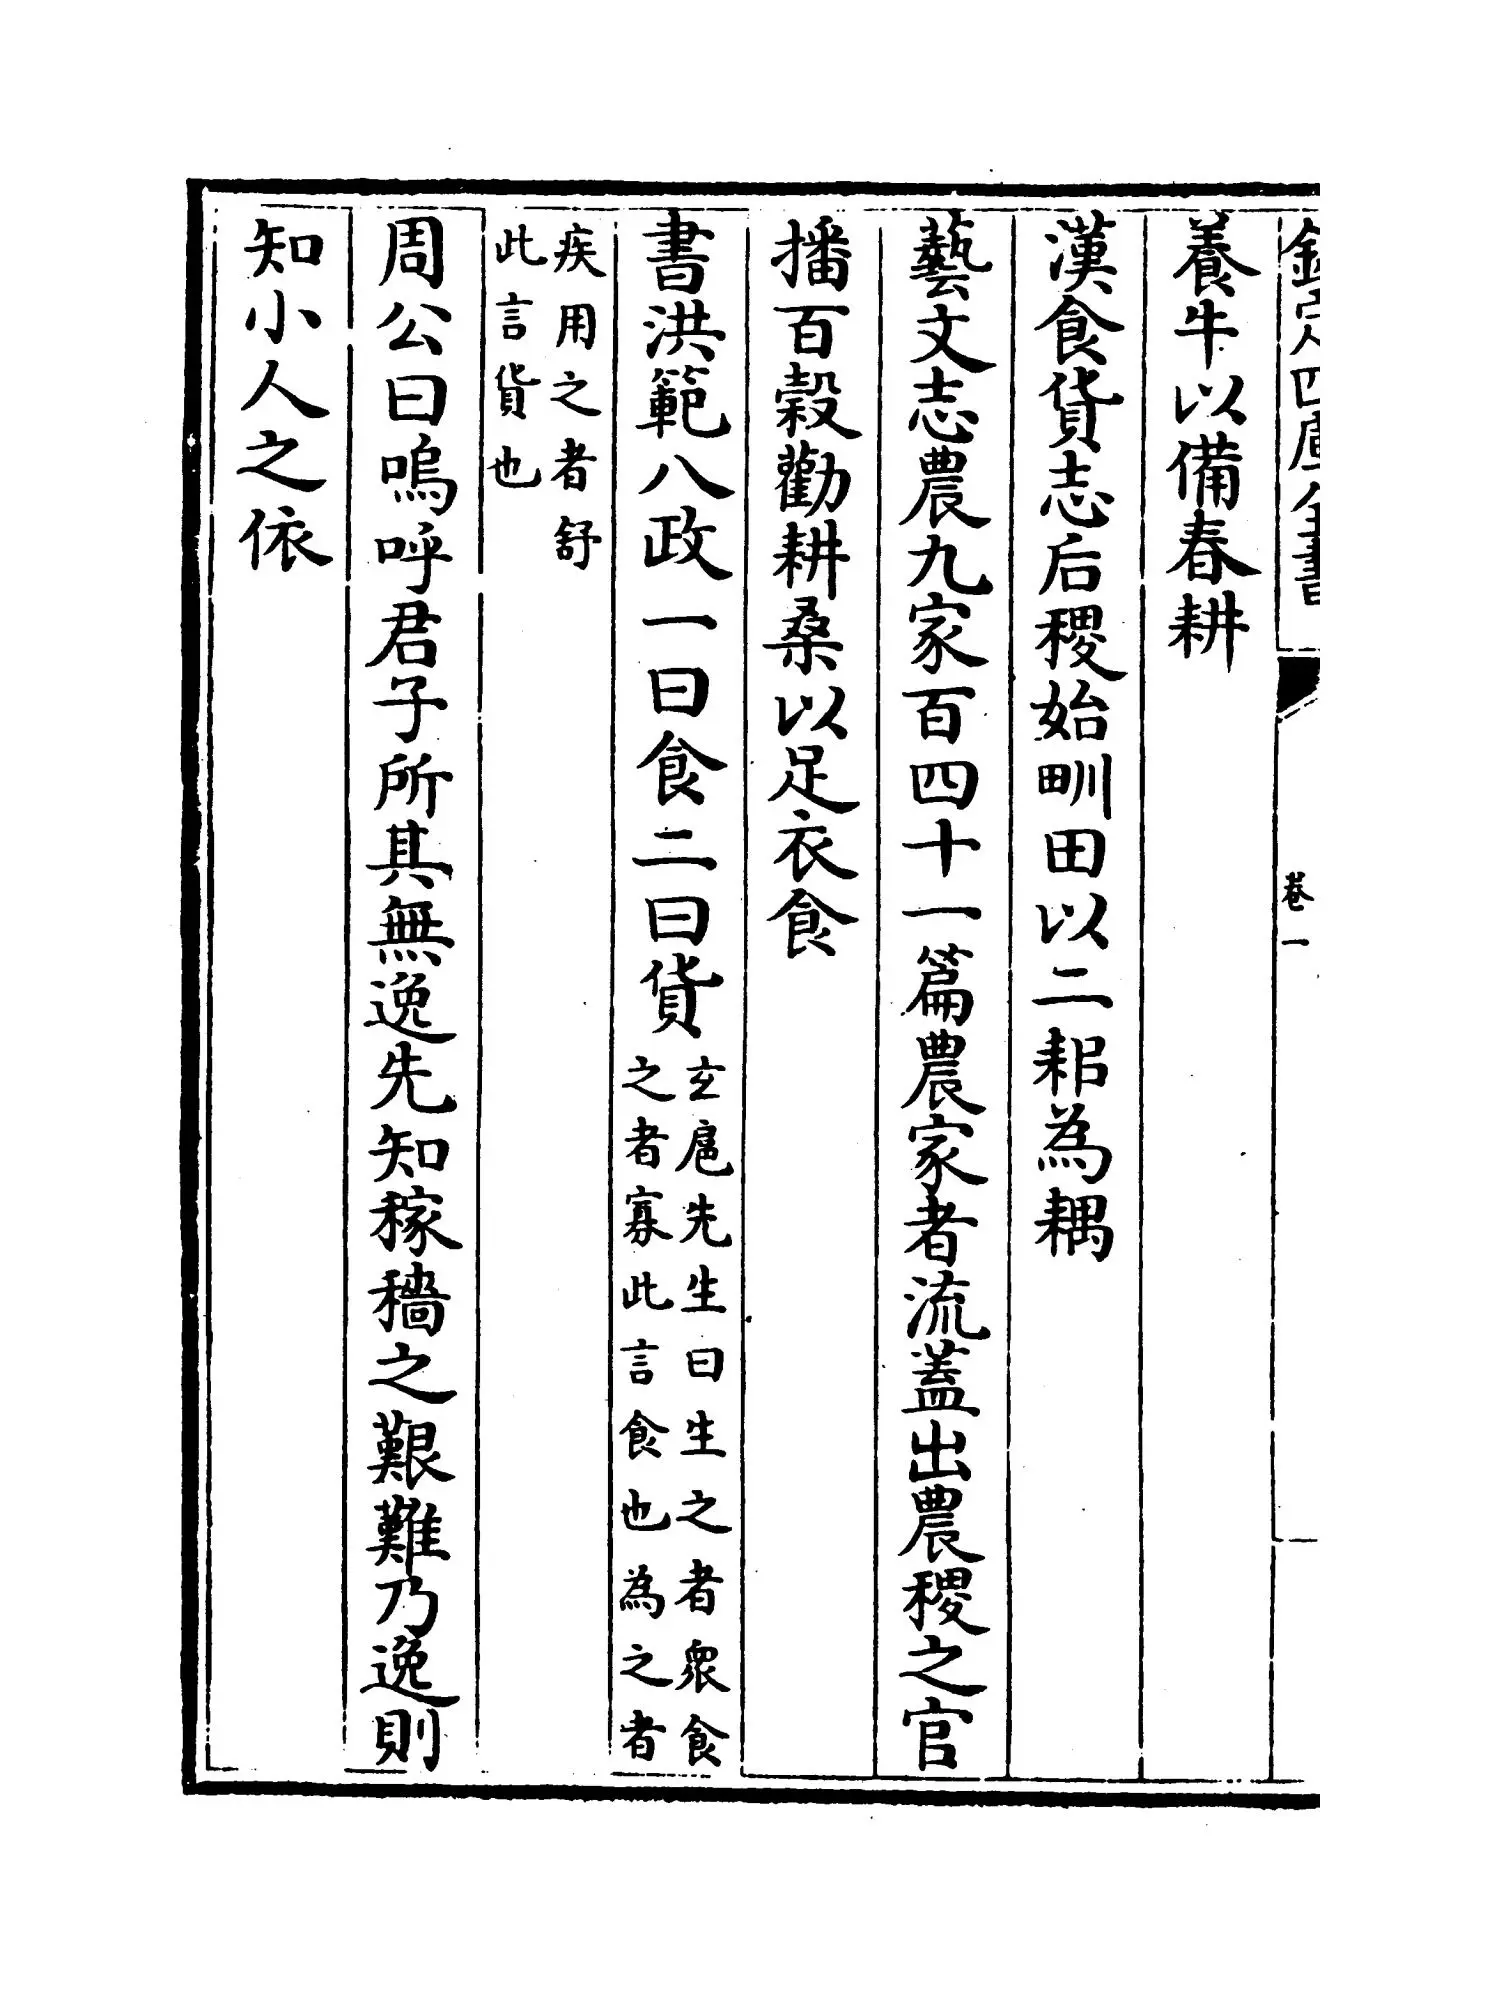 欽定四庫全書
卷一
養牛以備春耕
漢食貨志后稷始甽田以二耜為耦
藝文志農九家百四十一篇農家者流蓋出農稷之官
播百穀勸耕桑以足衣食
書洪範八政一曰食二曰貨
玄扈先生曰生之者衆食
之者寡此言食也為之者
疾用之者舒
此言貨也
周公曰嗚呼君子所其無逸先知稼穡之艱難乃逸則
知小人之依